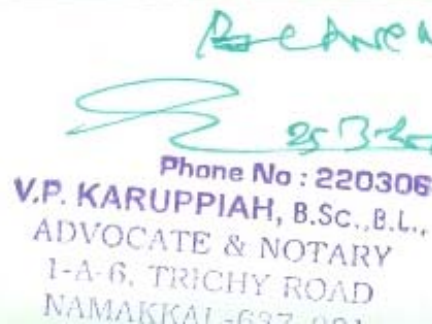 Phone No : 220306
V.P. KARUPPIAH, B.Sc.,B.L.,
ADVOCATE & NOTARY
1-A-6, TRICHY ROAD
NAMAKKAL-637 001